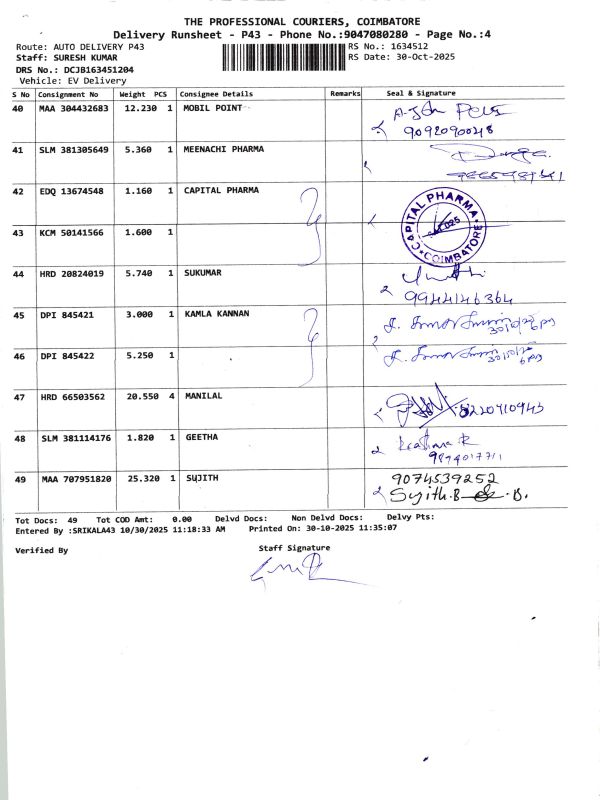 THE PROFESSIONAL COURIERS, COIMBATORE
Delivery Runsheet - P43 - Phone No.:9047080280 - Page No.:4
Route: AUTO DELIVERY P43 RS No.: 1634512
Staff: SURESH KUMAR RS Date: 30-Oct-2025
DRS No.: DCJB163451204
Vehicle: EV Delivery
S No Consignment No Weight PCS Consignee Details Remarks Seal & Signature
40 MAA 304432683 12.230 1 MOBIL POINT
9092090048
41 SLM 381305649 5.360 1 MEENACHI PHARMA
42 EDQ 13674548 1.160 1 CAPITAL PHARMA
CAPITAL PHARMA COIMBATORE
43 KCM 50141566 1.600 1
44 HRD 20824019 5.740 1 SUKUMAR
9944146364
45 DPI 845421 3.000 1 KAMLA KANNAN
46 DPI 845422 5.250 1
47 HRD 66503562 20.550 4 MANILAL
8220710943
48 SLM 381114176 1.820 1 GEETHA
49 MAA 707951820 25.320 1 SUJITH
9074539252
Sujith.B
Tot Docs: 49 Tot COD Amt: 0.00 Delvd Docs: Non Delvd Docs: Delvy Pts:
Entered By :SRIKALA43 10/30/2025 11:18:33 AM Printed On: 30-10-2025 11:35:07
Verified By Staff Signature